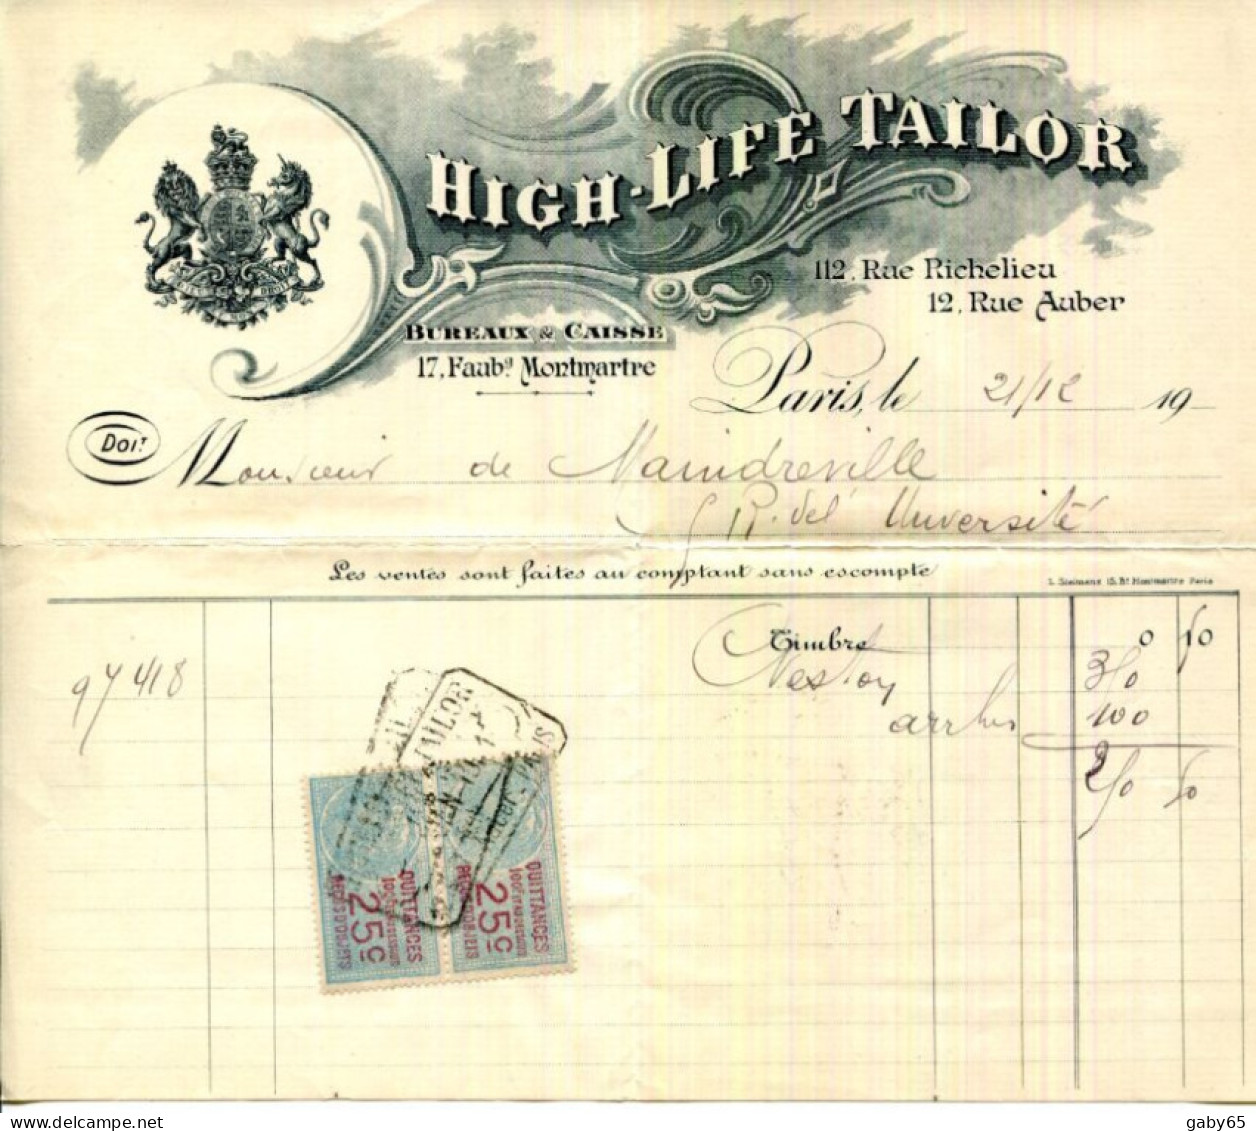 HIGH-LIFE TAILOR
112, Rue Richelieu
12, Rue Auber
BUREAUX & CAISSE
17, Faubg Montmartre
Paris, le 21/12 19
DOIT
Monsieur de Maindreville
5 R. de l'Université
Les ventes sont faites au comptant sans escompte
L. Sielmens 15, Bd Montmartre Paris
Timbre 0 50
97418
350
arrhes 100
250 50
TAILOR
QUITTANCES
25c
QUITTANCES
25c
www.delcampe.net
gaby65